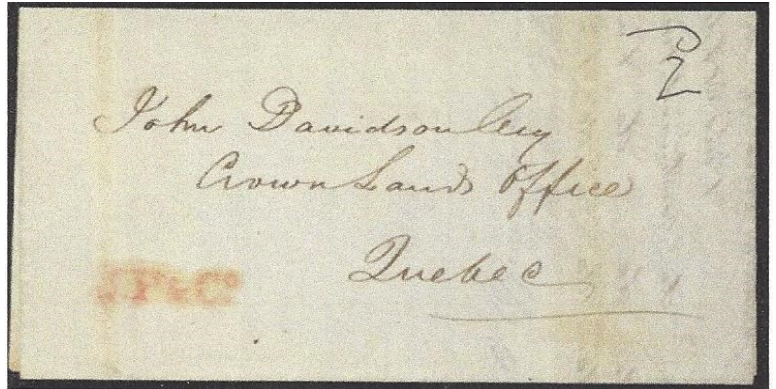 2
John Davidson Esq
Crown Lands Office
Quebec
J P & Co